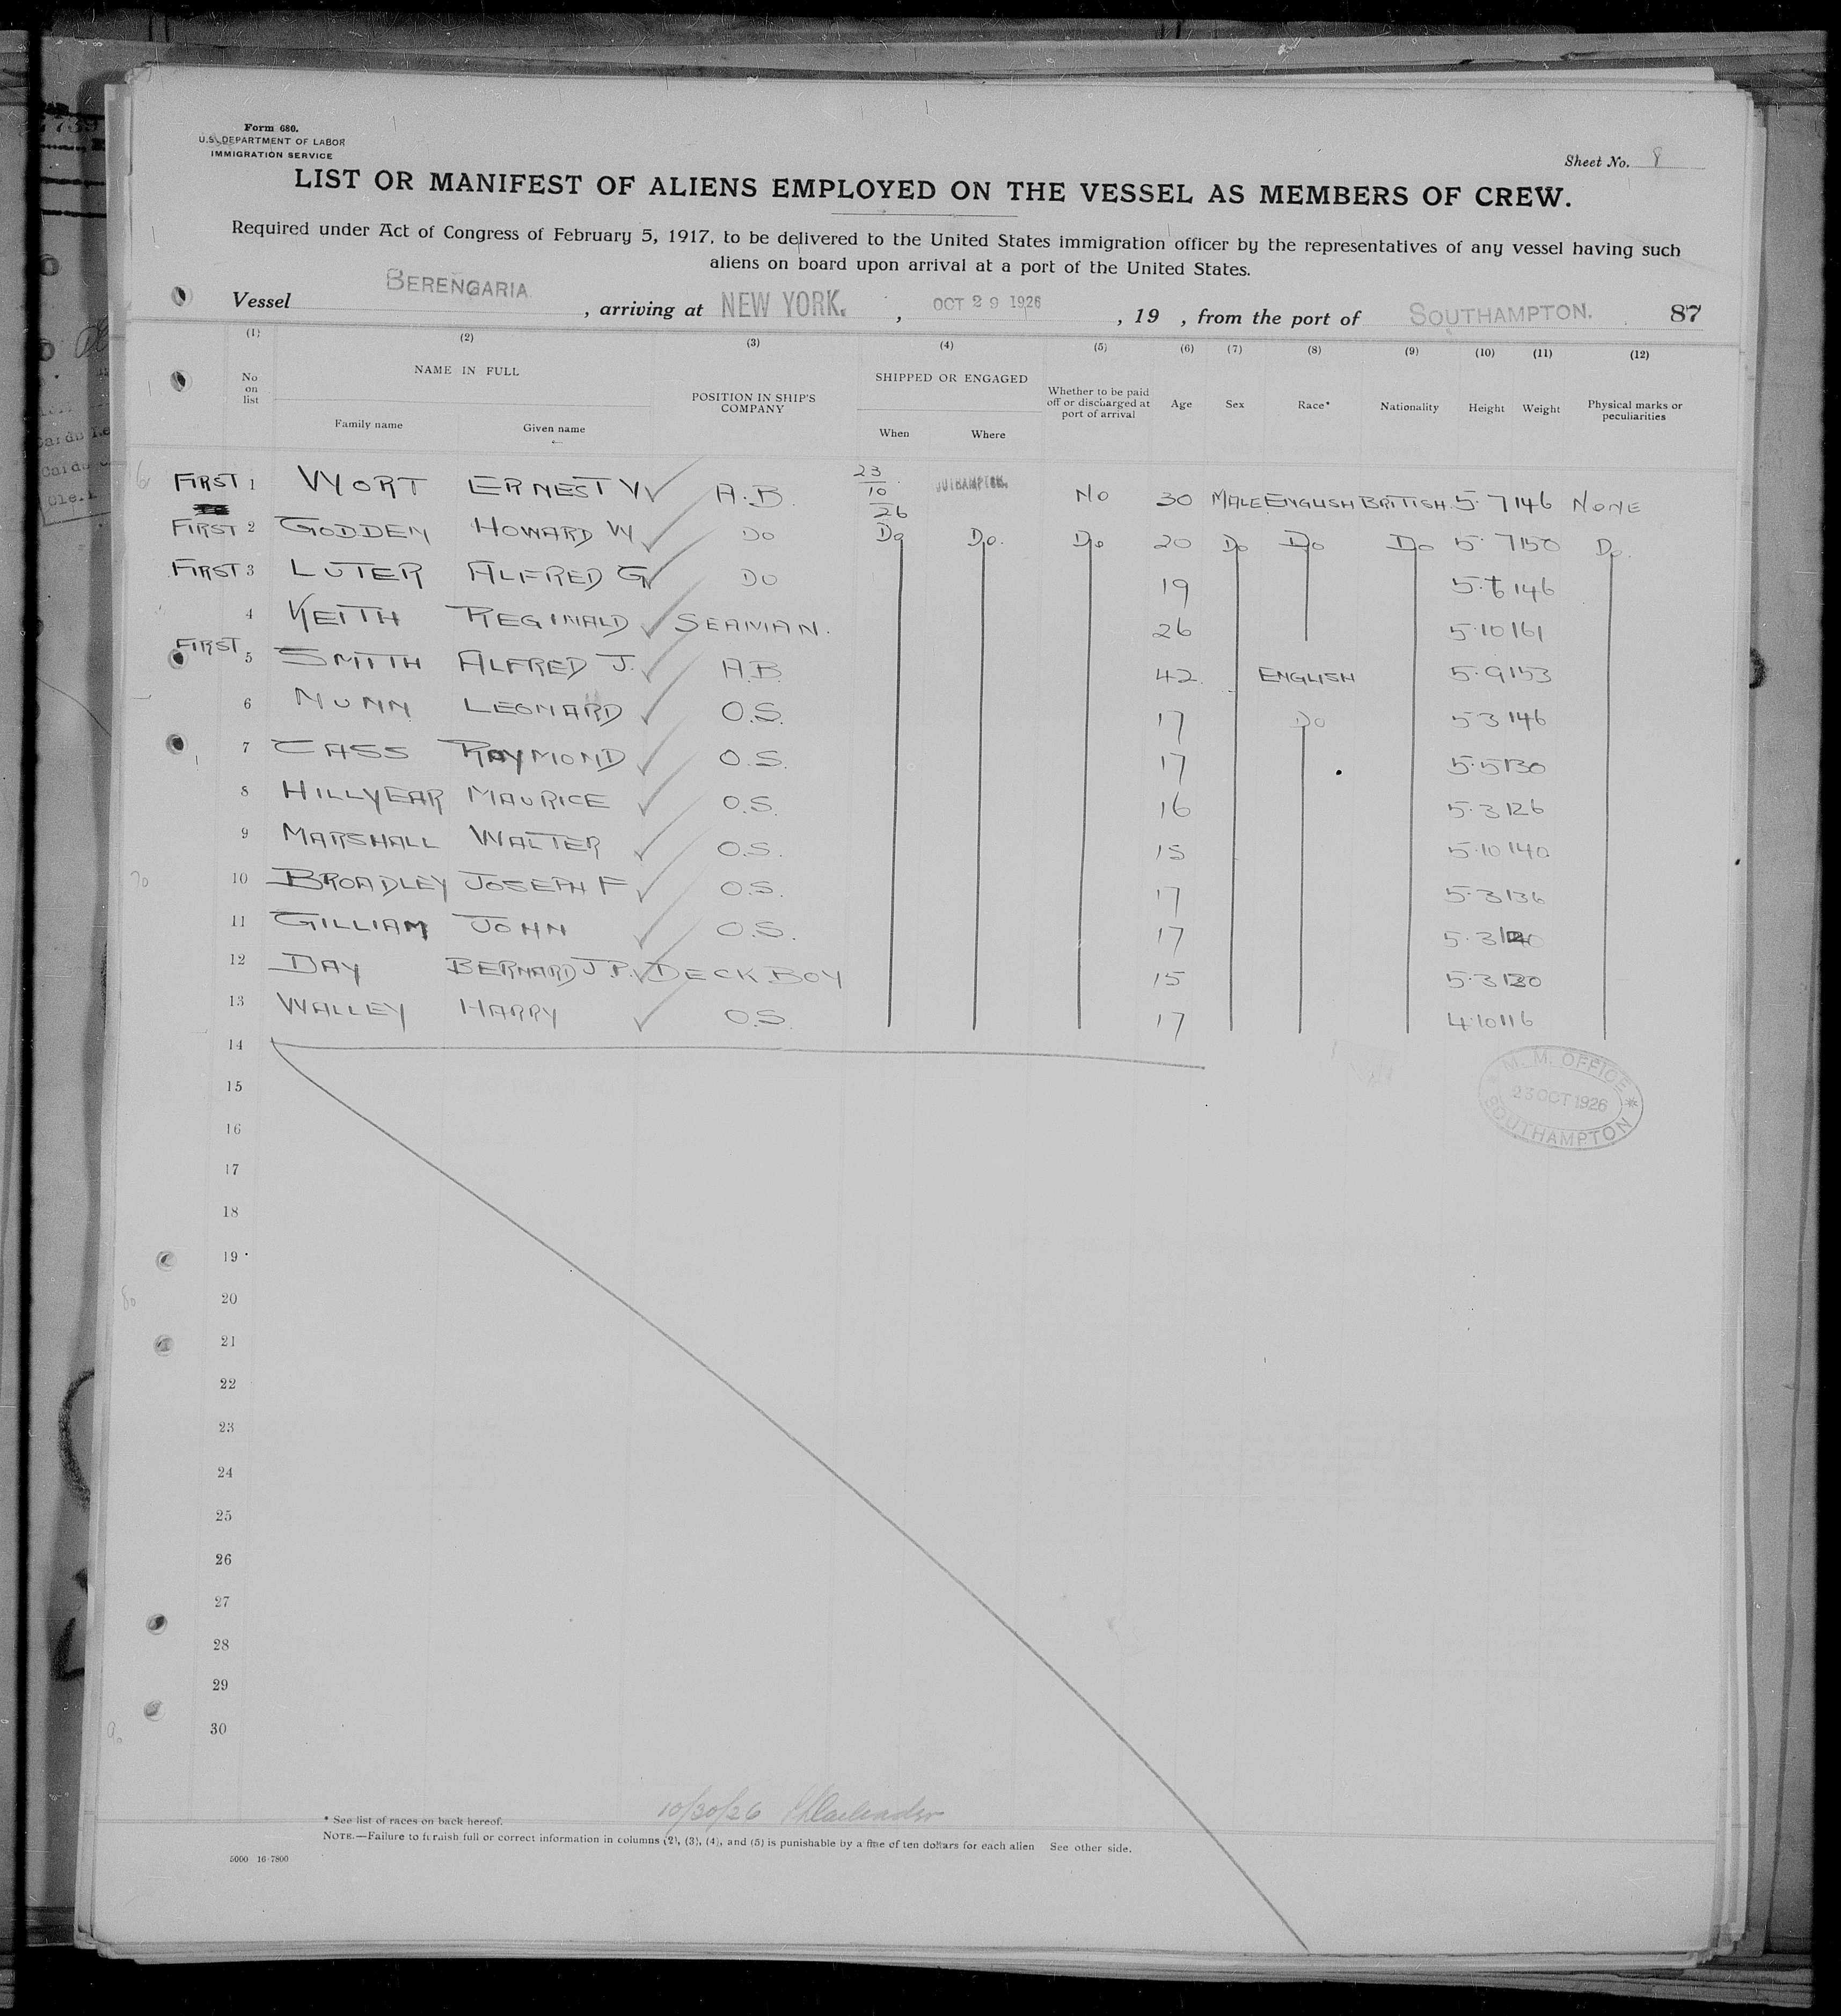 Form 680.
U.S. DEPARTMENT OF LABOR
IMMIGRATION SERVICE
Sheet No. 8
LIST OR MANIFEST OF ALIENS EMPLOYED ON THE VESSEL AS MEMBERS OF CREW.
Required under Act of Congress of February 5, 1917, to be delivered to the United States immigration officer by the representatives of any vessel having such
aliens on board upon arrival at a port of the United States.
Vessel BERENGARIA, arriving at NEW YORK., OCT 29 1926, 19 , from the port of SOUTHAMPTON. 87
(1) (2) (3) (4) (5) (6) (7) (8) (9) (10) (11) (12)
No on list NAME IN FULL Family name Given name POSITION IN SHIP'S COMPANY SHIPPED OR ENGAGED When Where Whether to be paid off or discharged at port of arrival Age Sex Race* Nationality Height Weight Physical marks or peculiarities
FIRST 1 WORT ERNEST W A.B. 23/10/26 No 30 MALE ENGLISH BRITISH 5.7 146 NONE
FIRST 2 GODDEN HOWARD W Do Do Do. Do 20 Do Do Do 5.7 150 Do.
FIRST 3 LUTER ALFRED G Do 19 5.6 146
4 KEITH REGINALD SEAMAN. 26 5.10 161
FIRST 5 SMITH ALFRED J. A.B. 42 ENGLISH 5.9 153
6 NUNN LEONARD O.S. 17 Do 5.3 146
7 CASS RAYMOND O.S. 17 5.5 130
8 HILLYEAR MAURICE O.S. 16 5.3 126
9 MARSHALL WALTER O.S. 15 5.10 140
70 10 BROADLEY JOSEPH F O.S. 17 5.3 136
11 GILLIAM JOHN O.S. 17 5.3
12 DAY BERNARD J.P. DECK BOY 15 5.3
13 WALLEY HARRY O.S. 17 4.10 116
14
15
16
17
18
19
80 20
21
22
23
24
25
26
27
28
29
90 30
M. M. OFFICE
23 OCT 1926
SOUTHAMPTON
10/30/26
* See list of races on back hereof.
NOTE.—Failure to furnish full or correct information in columns (2), (3), (4), and (5) is punishable by a fine of ten dollars for each alien See other side.
5000 16-7800